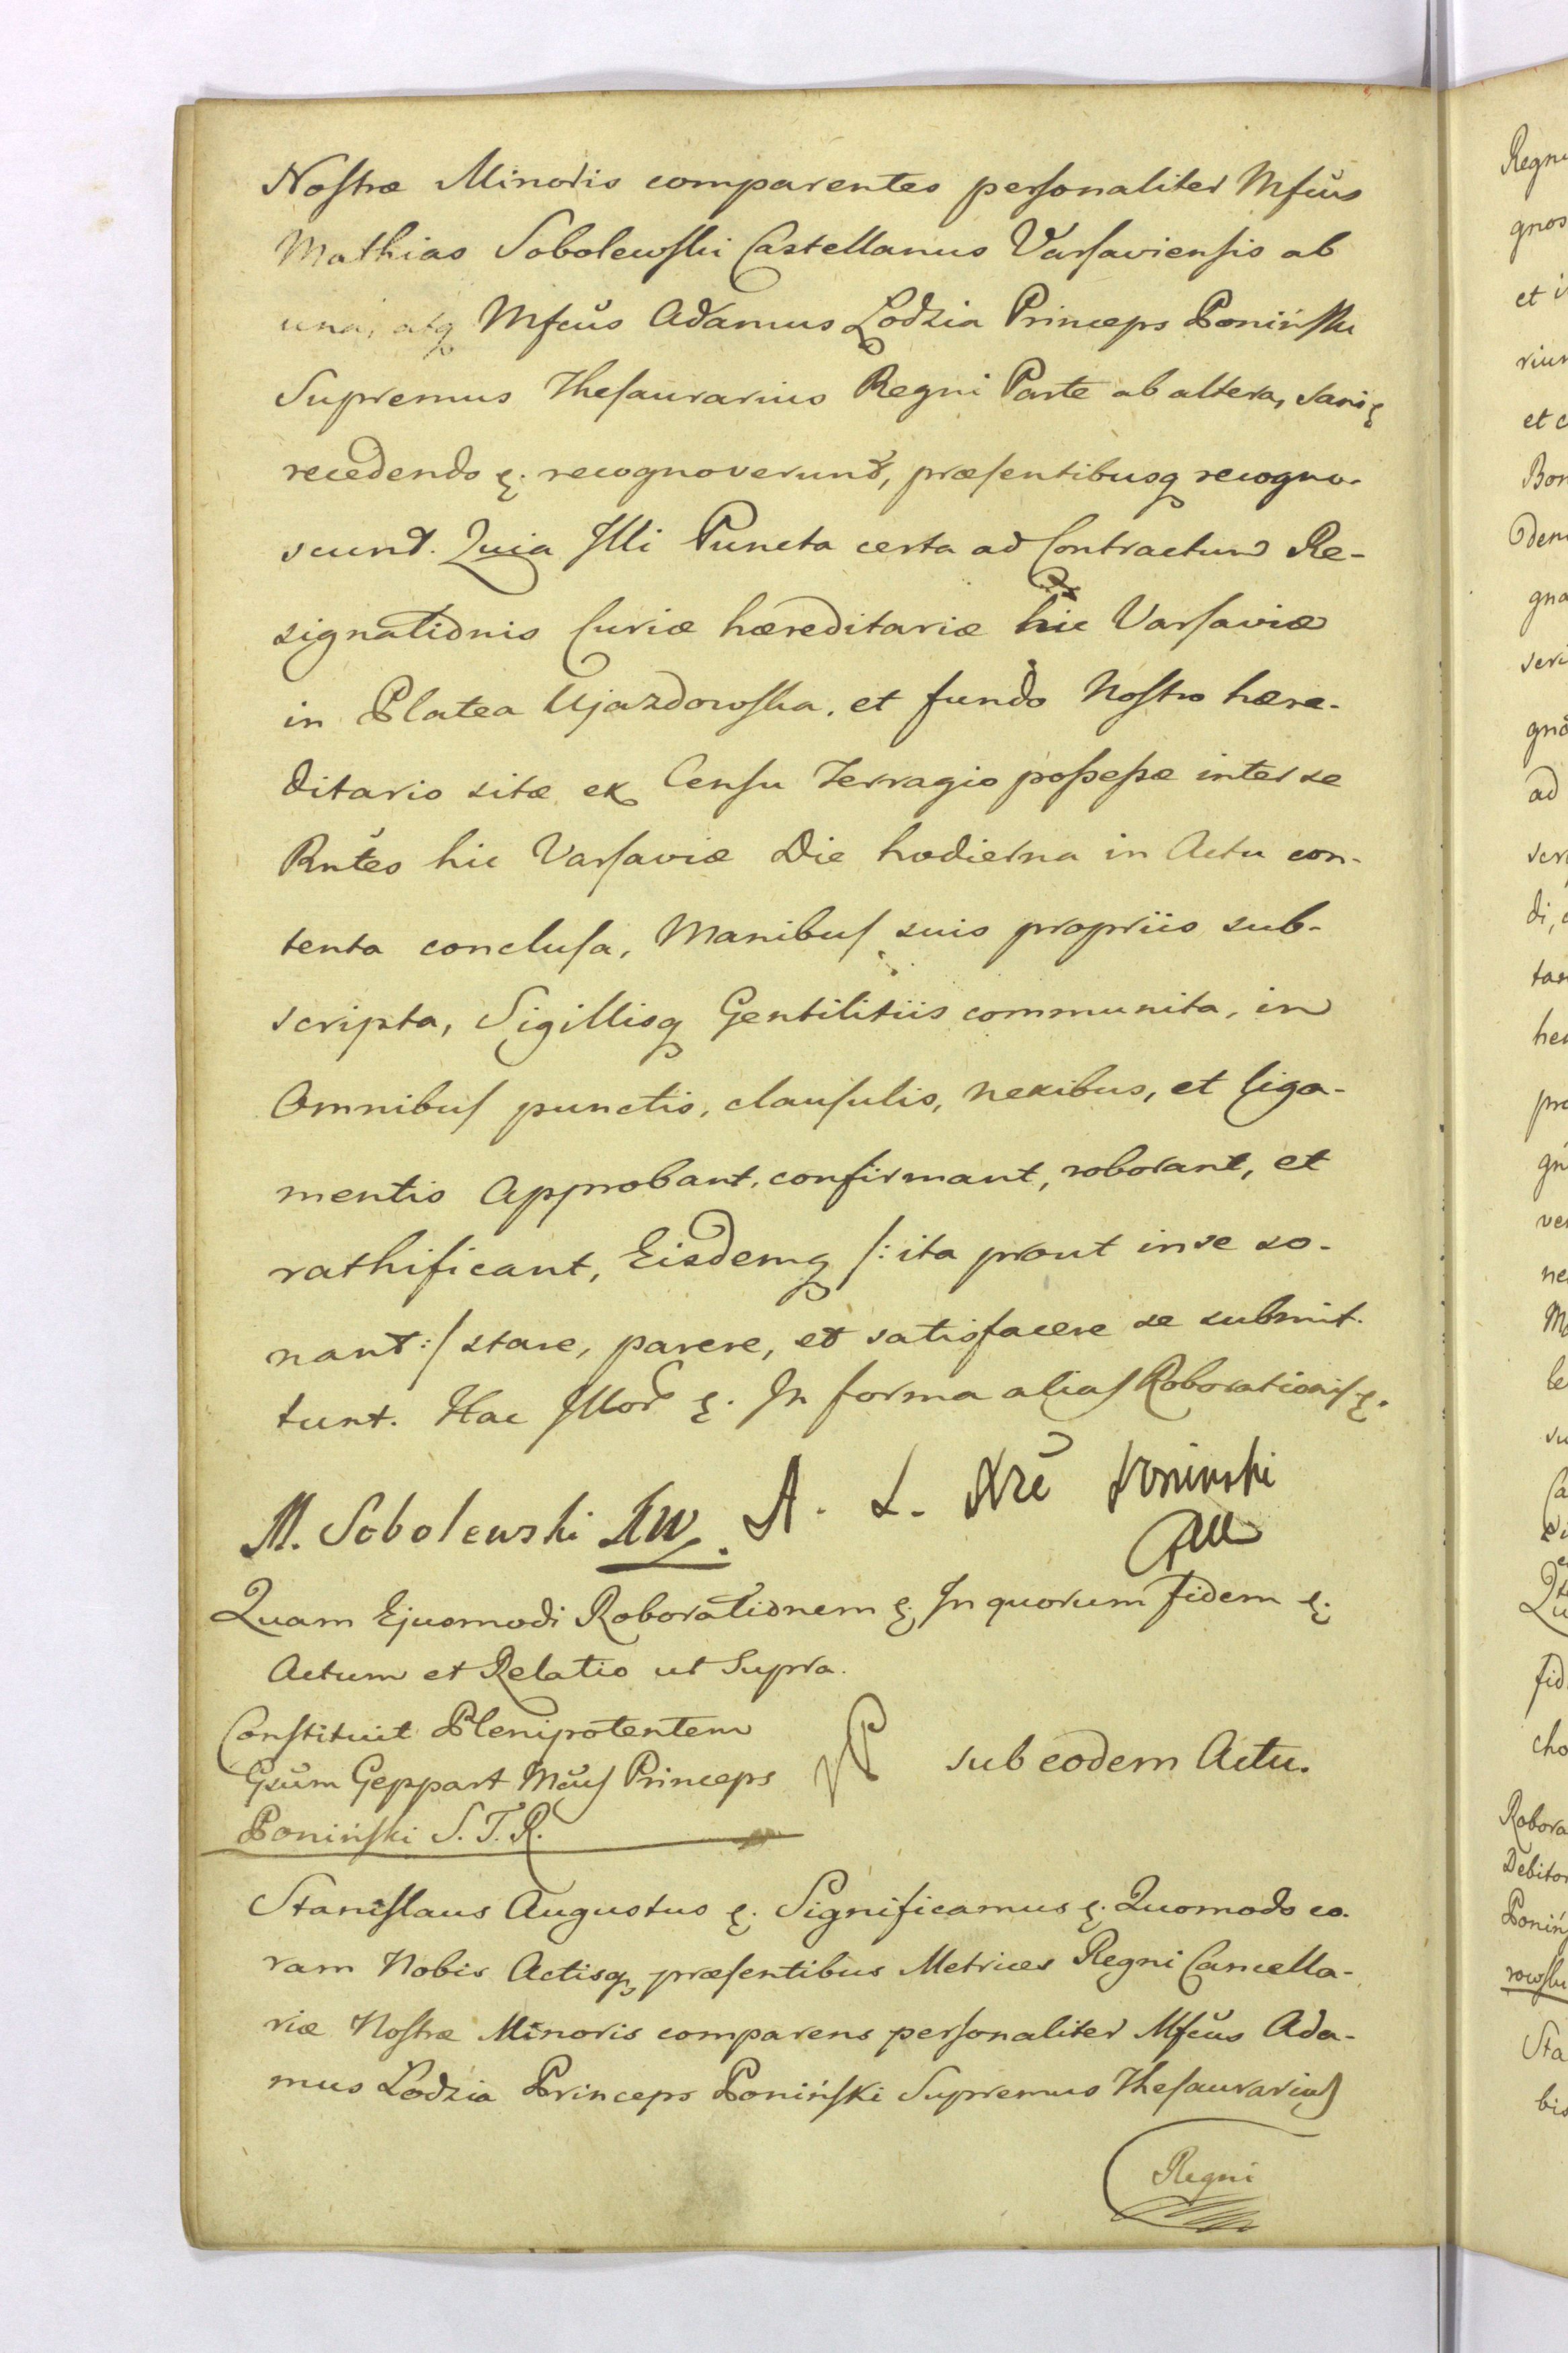 Nostræ Minoris comparentes personaliter Mfcus
Mathias Sobolewski Castellanus Varsaviensis ab
una, atq Mfcus Adamus Lodzia Princeps Poniński
Supremus Thesaurarius Regni Parte ab altera, sani &
recedendo &. recognoverunt, præsentibusq recogno-
scunt. Quia Illi Puncta certa ad Contractum Re-
signationis Curiæ hæreditariæ hic Varsaviæ
in Platea Ujazdowska, et fundo Nostro hære-
ditario sitæ ex Censu Terragio possessæ inter se
Rntes hic Varsaviæ Die hodierna in Actu con-
tenta conclusa, Manibus suis propriis sub-
scripta, Sigillisq Gentilitiis communita, in
Omnibus punctis, clausulis, nexibus, et liga-
mentis Approbant, confirmant, roborant, et
rathificant, Eisdemq /: ita prout in se so-
nant :/ stare, parere, et satisfacere se submit-
tunt. Hac Illor &. In forma alias Roborationis &.
M. Sobolewski KW. A. L. Xże Poninski
Quam Ejusmodi Roborationem &. In quorum fidem &.
Actum et Relatio ut Supra.
Constituit Plenipotentem
Gsum Geppart Mcus Princeps
Poniński S. T. R.
sub eodem Actu.
Stanislaus Augustus &. Significamus &. Quomodo co-
ram Nobis Actisq præsentibus Metrices Regni Cancella-
riæ Nostræ Minoris comparens personaliter Mfcus Ada-
mus Lodzia Princeps Poniński Supremus Thesaurarius
Regni